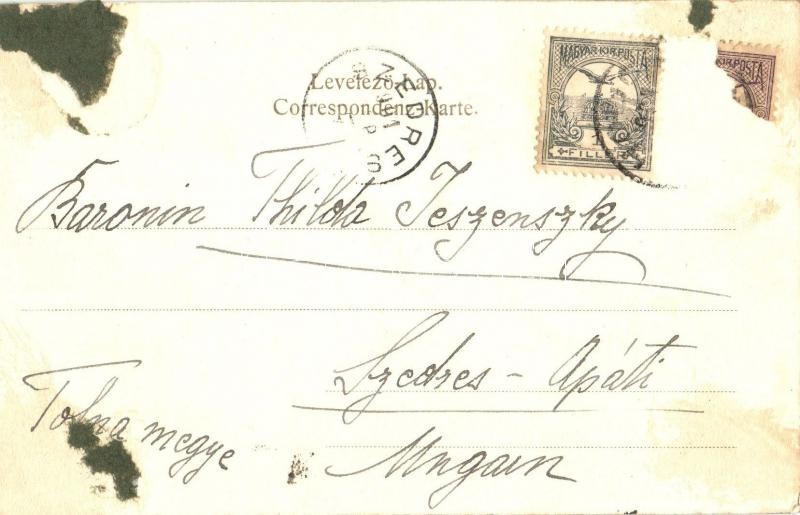 Levelező-Lap.
Correspondenz-Karte.
MAGYAR KIR. POSTA
FILLÉR
SZEDRES
Baronin Thilda Jeszenszky
Szedres - Apáti
Tolna megye
Ungarn